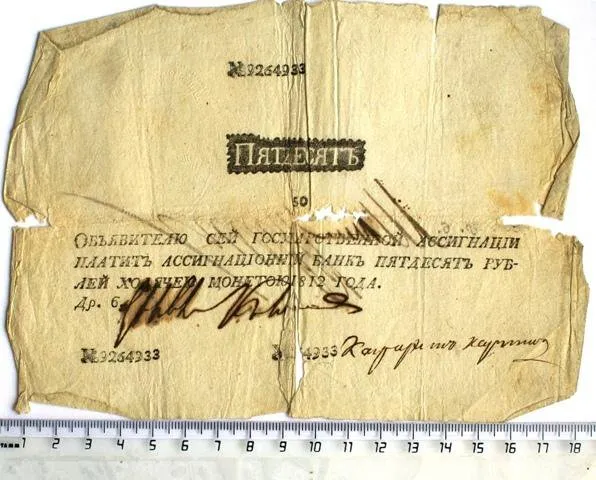 №9264933
ПЯТДЕСЯТЪ
50
ОБЪЯВИТЕЛЮ СЕЙ ГОСУДАРСТВЕННОЙ АССИГНАЦІИ
ПЛАТИТЪ АССИГНАЦІОННЫЙ БАНКЪ ПЯТДЕСЯТЪ РУБ-
ЛЕЙ ХОДЯЧЕЮ МОНЕТОЮ 1812 ГОДА.
Др. 6.
№9264933 № 4933
1 2 3 4 5 6 7 8 9 10 11 12 13 14 15 16 17 18